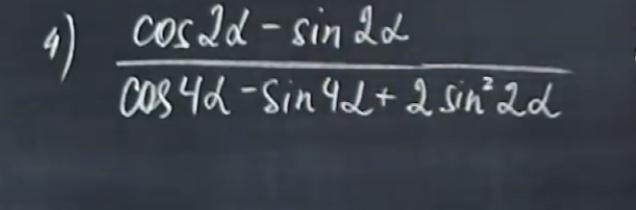 4) cos2α - sin 2α
cos 4α - sin 4α + 2 sin² 2α